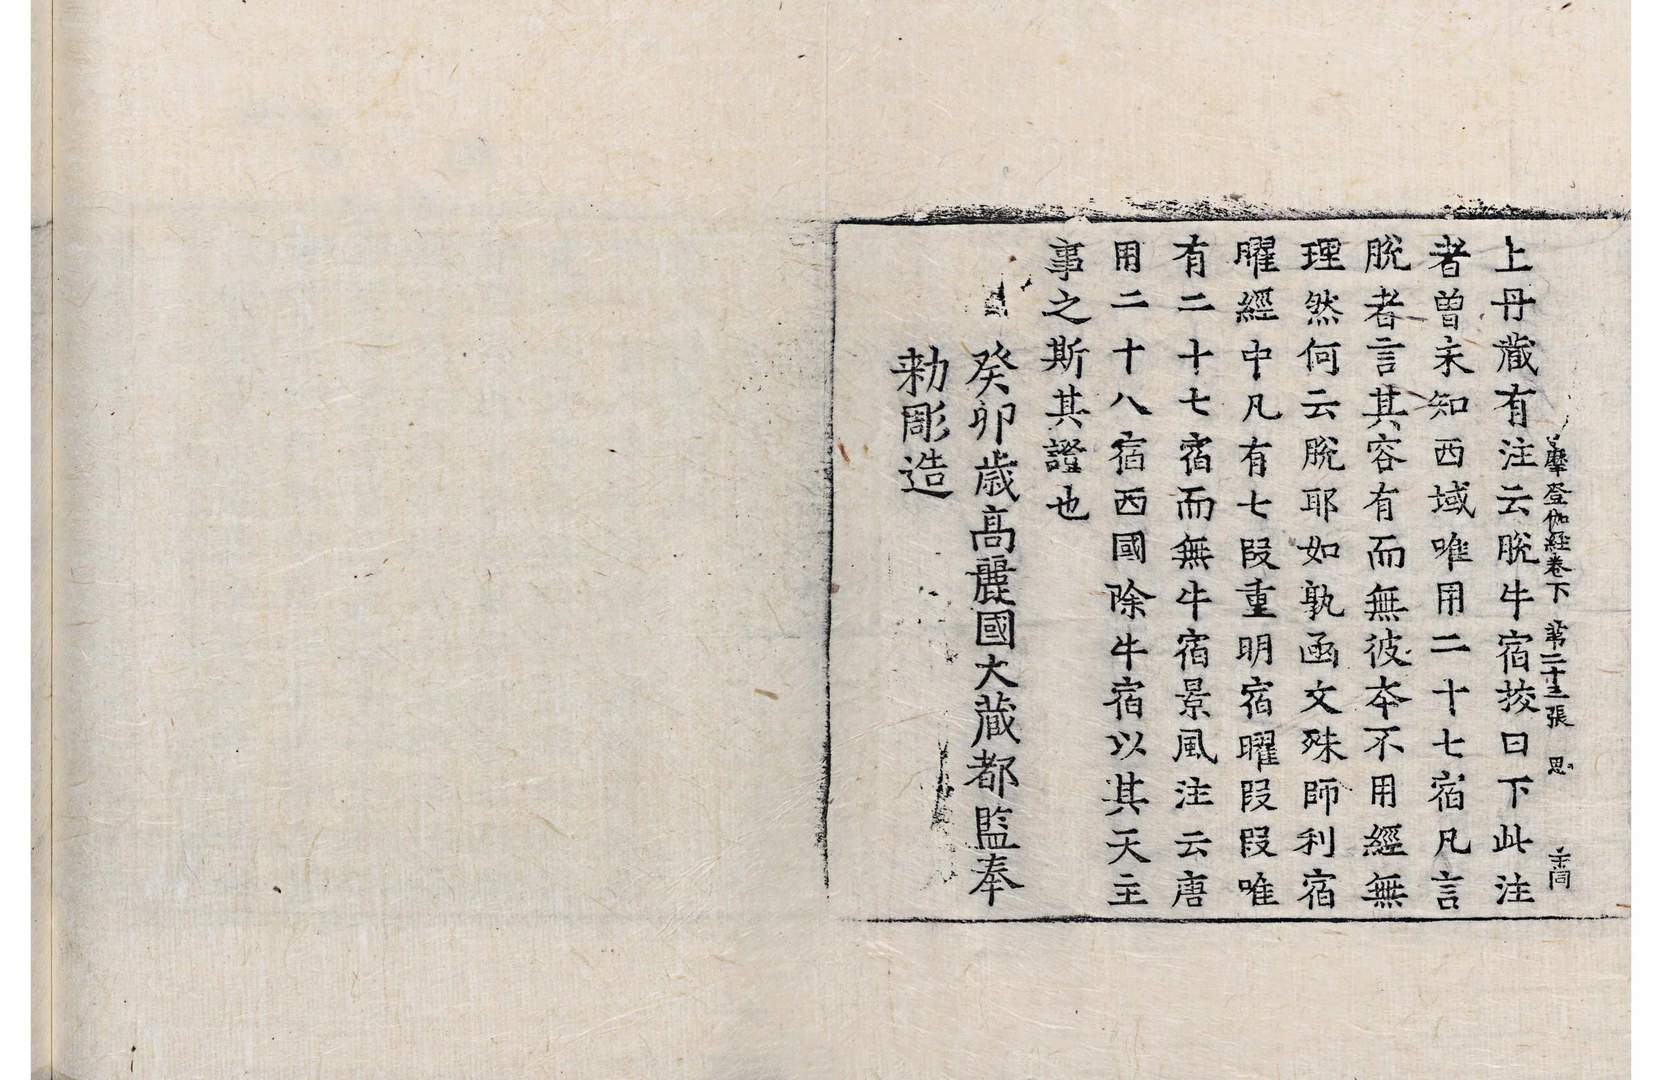 摩登伽経卷下 第二十三張 思
上丹藏有注云脫牛宿挍曰下此注
者曾未知西域唯用二十七宿凡言
脫者言其容有而無彼夲不用經無
理然何云脫耶如孰函文殊師利宿
曜經中凡有七段重明宿曜段段唯
有二十七宿而無牛宿景風注云唐
用二十八宿西國除牛宿以其天主
事之斯其證也
癸卯歳高麗國大藏都監奉
勑彫造